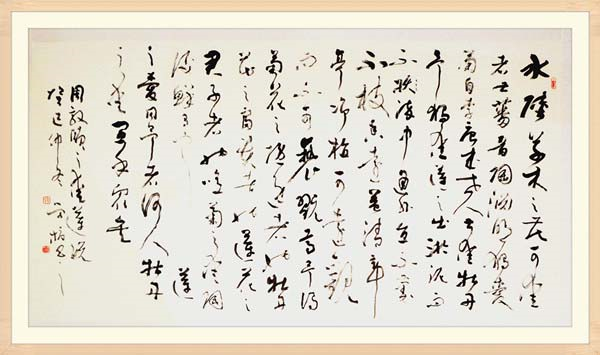 水陸草木之花可愛
者甚蕃晉陶淵明獨愛
菊自李唐來世人甚愛牡丹
予獨愛蓮之出淤泥而
不染中通外直不蔓
不枝香遠益清亭
亭淨植可遠觀
而不可褻玩焉予謂
菊花之隱逸者也牡丹
花之富貴者也蓮花之
君子者也噫菊之愛陶
後鮮有聞蓮
之愛同予者何人牡丹
之愛宜乎眾矣
周敦頤之愛蓮說
癸巳仲冬